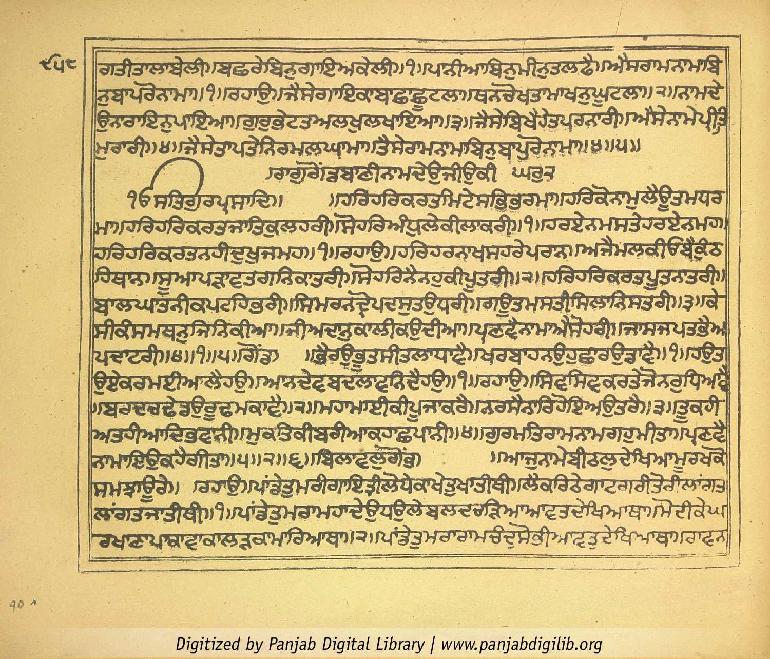 ੮੫੮
ਗਤੀਤਾਲਾਬੇਲੀ॥ਬਛਰੇਬਿਨੁਗਾਇਅਕੇਲੀ॥੧॥ਪਾਨੀਆਬਿਨੁਮੀਨੁਤਲਫੈ॥ਐਸੇਰਾਮਨਾਮਾਬਿ
ਨੁਬਾਪੁਰੋਨਾਮਾ॥੧॥ਰਹਾਉ॥ਜੈਸੇਗਾਇਕਾਬਾਛਾਛੂਟਲਾ॥ਥਨਚੋਖਤਾਮਾਖਨੁਘੂਟਲਾ॥੨॥ਨਾਮਦੇ
ਉਨਾਰਾਇਨੁਪਾਇਆ॥ਗੁਰੁਭੇਟਤਅਲਖੁਲਖਾਇਆ॥੩॥ਜੈਸੇਬਿਖੈਹੇਤਪਰਨਾਰੀ॥ਐਸੇਨਾਮੇਪ੍ਰੀਤਿ
ਮੁਰਾਰੀ॥੪॥ਜੈਸੇਤਾਪਤੇਨਿਰਮਲਘਾਮਾ॥ਤੈਸੇਰਾਮਨਾਮਾਬਿਨੁਬਾਪੁਰੋਨਾਮਾ॥੫॥੪॥
ਰਾਗੁਗੋਂਡਬਾਣੀਨਾਮਦੇਉਜੀਉਕੀ ਘਰੁ੨
੧ਓ ਸਤਿਗੁਰਪ੍ਰਸਾਦਿ॥ ॥ਹਰਿਹਰਿਕਰਤਮਿਟੇਸਭਿਭਰਮਾ॥ਹਰਿਕੋਨਾਮੁਲੈਊਤਮਧਰ
ਮਾ॥ਹਰਿਹਰਿਕਰਤਜਾਤਿਕੁਲਹਰੀ॥ਸੋਹਰਿਅੰਧੁਲੇਕੀਲਾਕਰੀ॥੧॥ਹਰਏਨਮਸਤੇਹਰਏਨਮਹ॥
ਹਰਿਹਰਿਕਰਤਨਹੀਦੁਖੁਜਮਹ॥੧॥ਰਹਾਉ॥ਹਰਿਹਰਨਾਖਸਹਰੇਪਰਾਨ॥ਅਜੈਮਲਕੀਓਬੈਕੁੰਠ
ਹਿਥਾਨ॥ਸੂਆਪੜਾਵਤਗਨਿਕਾਤਰੀ॥ਸੋਹਰਿਨੈਨਹੁਕੀਪੂਤਰੀ॥੨॥ਹਰਿਹਰਿਕਰਤਪੂਤਨਾਤਰੀ॥
ਬਾਲਘਾਤਨੀਕਪਟਹਿਭਰੀ॥ਸਿਮਰਨਦ੍ਰੋਪਦਸੁਤਉਧਰੀ॥ਗਊਤਮਸਤੀਸਿਲਾਨਿਸਤਰੀ॥੩॥ਕੇ
ਸੀਕੰਸਮਥਨੁਜਿਨਿਕੀਆ॥ਜੀਅਦਾਨੁਕਾਲੀਕਉਦੀਆ॥ਪ੍ਰਣਵੈਨਾਮਾਐਸੋਹਰੀ॥ਜਾਸੁਜਪਤਭੈਅ
ਪਦਾਟਰੀ॥੪॥੧॥੫॥ਗੋਂਡ॥ ॥ਭੈਰਉਭੂਤਸੀਤਲਾਧਾਵੈ॥ਖਰਬਾਹਨਉਹੁਛਾਰਉਡਾਵੈ॥੧॥ਹਉਤ
ਉਏਕੁਰਮਈਆਲੈਹਉ॥ਆਨਦੇਵਬਦਲਾਵਨਿਦੈਹਉ॥੧॥ਰਹਾਉ॥ਸਿਵਸਿਵਕਰਤੇਜੋਨਰੁਧਿਆਵੈ
॥ਬਰਦਚਢੇਡਉਰੂਢਮਕਾਵੈ॥੨॥ਮਹਾਮਾਈਕੀਪੂਜਾਕਰੈ॥ਨਰਸੈਨਾਰਿਹੋਇਅਉਤਰੈ॥੩॥ਤੂਕਹੀ
ਅਤਹੀਆਦਿਭਵਾਨੀ॥ਮੁਕਤਿਕੀਬਰੀਆਕਹਾਛਪਾਨੀ॥੪॥ਗੁਰਮਤਿਰਾਮਨਾਮਗਹੁਮੀਤਾ॥ਪ੍ਰਣਵੈ
ਨਾਮਾਇਉਕਹੈਗੀਤਾ॥੫॥੨॥੬॥ਬਿਲਾਵਲੁਗੋਂਡ॥ ॥ਆਜੁਨਾਮੇਬੀਠਲੁਦੇਖਿਆਮੂਰਖਕੋ
ਸਮਝਾਊਰੇ॥ ਰਹਾਉ॥ਪਾਂਡੇਤੁਮਰੀਗਾਇਤ੍ਰੀਲੋਧੇਕਾਖੇਤੁਖਾਤੀਥੀ॥ਲੈਕਰਿਠੇਗਾਟਗਰੀਤੋਰੀਲਾਂਗਤ
ਲਾਂਗਤਜਾਤੀਥੀ॥੧॥ਪਾਂਡੇਤੁਮਰਾਮਹਾਦੇਉਧਉਲੇਬਲਦਚੜਿਆਆਵਤਦੇਖਿਆਥਾ॥ਮੋਦੀਕੇਘ
ਰਖਾਣਾਪਾਕਾਵਾਕਾਲੜਕਾਮਾਰਿਆਥਾ॥੨॥ਪਾਂਡੇਤੁਮਰਾਰਾਮਚੰਦੁਸੋਭੀਆਵਤੁਦੇਖਿਆਥਾ॥ਰਾਵਨ
Digitized by Panjab Digital Library | www.panjabdigilib.org